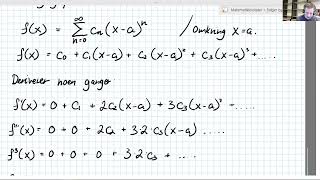 f(x) = ∞ Σ n=0 cₙ(x-a)ⁿ /Omkring x=a.
f(x) = C₀ + C₁(x-a) + C₂(x-a)² + C₃(x-a)³+....
Deriverer noen ganger
f'(x) = 0 + C₁ + 2C₂(x-a) + 3C₃(x-a)² ....
f''(x) = 0 + 0 + 2C₂ + 3·2·C₃(x-a) .....
f³(x) = 0 + 0 + 0 + 3·2·C₃ + ....